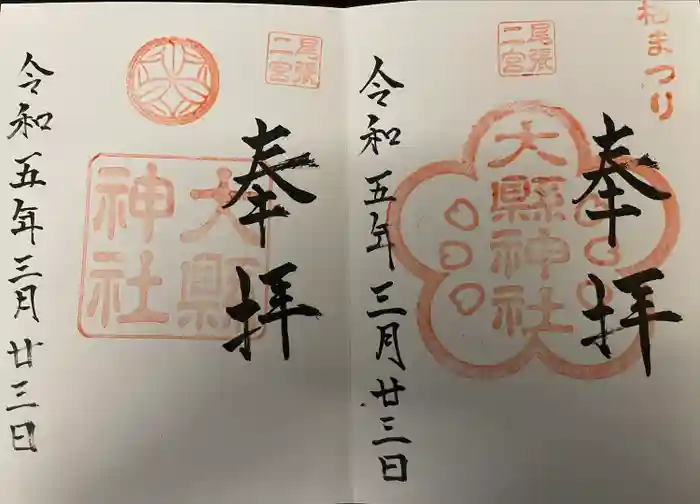 梅まつり
奉拝
尾張二宮
大縣神社
令和五年三月廿三日
奉拝
尾張二宮
大縣神社
令和五年三月廿三日